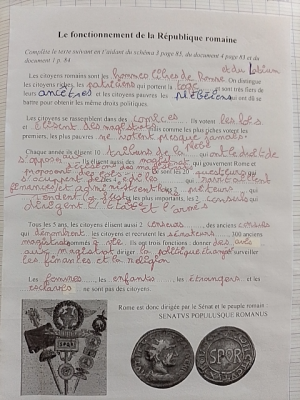 Le fonctionnement de la République romaine
Complète le texte suivant en t'aidant du schéma 3 page 85, du document 4 page 85 et du
document 1 p. 84
et du Latium
Les citoyens romains sont les hommes libres de Rome. On distingue
les citoyens riches, les patriciens qui portent la toge sont très fiers de
leurs ancêtres et les citoyens pauvres, les plébéiens qui ont dû se
battre pour obtenir les mêmes droits politiques.
Les citoyens se rassemblent dans des comices. Ils votent les lois
et élisent des magistrats comme les plus riches votent les
premiers, les plus pauvres ne votent presque jamais.
Chaque année ils élisent 10 tribuns de la plèbe qui ont le droit de
s'opposer aux Ils élisent aussi des magistrats qui gouvernent Rome et
proposent des lois. les 20 questeurs qui
s'occupent des
finances et 2 préteurs
rendent la justice les plus importants, les 2 consuls qui
dirigent l'Etat et l'armée
Tous les 5 ans, les citoyens élisent aussi 2 censeurs, des anciens consuls
qui dénombrent les citoyens et recrutent les sénateurs 300 anciens
magistrats nommés à vie. Ils ont trois fonctions : donner des avis
aux magistrats diriger la politique surveiller
les finances et la religion
Les femmes, les enfants, les étrangers et les
esclaves ne sont pas des citoyens.
Rome est donc dirigée par le Sénat et le peuple romain
SENATVS POPULUSQUE ROMANUS
SPQR
SPQR